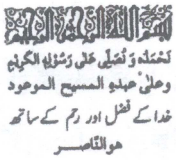 بسم الله الرحمن الرحيم
نحمده ونصلى على رسوله الكريم
وعلىٰ عبده المسيح الموعود
خدا کے فضل اور رحم کے ساتھ
هو الناصر